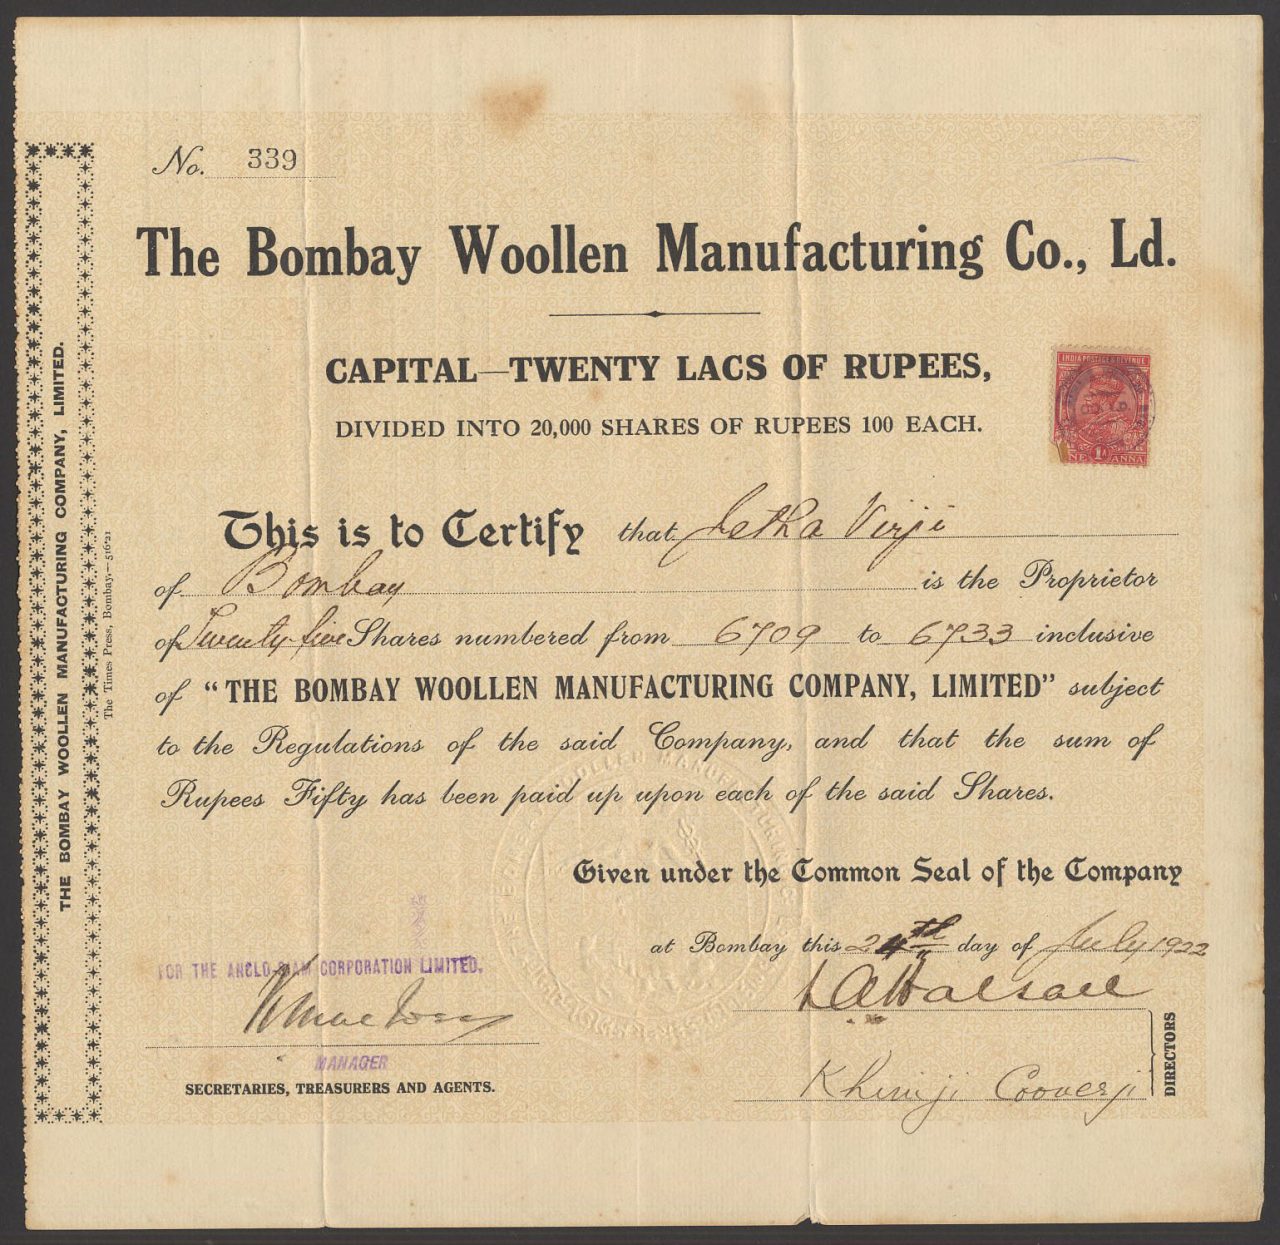 No. 339
The Bombay Woollen Manufacturing Co., Ld.
CAPITAL—TWENTY LACS OF RUPEES,
DIVIDED INTO 20,000 SHARES OF RUPEES 100 EACH.
INDIA POSTAGE & REVENUE
1A
ANNA
This is to Certify that Jetha Virji
of Bombay is the Proprietor
of Twenty five Shares numbered from 6709 to 6733 inclusive
of "THE BOMBAY WOOLLEN MANUFACTURING COMPANY, LIMITED" subject
to the Regulations of the said Company, and that the sum of
Rupees Fifty has been paid up upon each of the said Shares.
Given under the Common Seal of the Company
at Bombay this 24th day of July 1922
FOR THE ANGLO-SIAM CORPORATION LIMITED.
MANAGER
SECRETARIES, TREASURERS AND AGENTS.
Khimji Cooverji
DIRECTORS
THE BOMBAY WOOLLEN MANUFACTURING COMPANY, LIMITED.
The Times Press, Bombay.—516'21